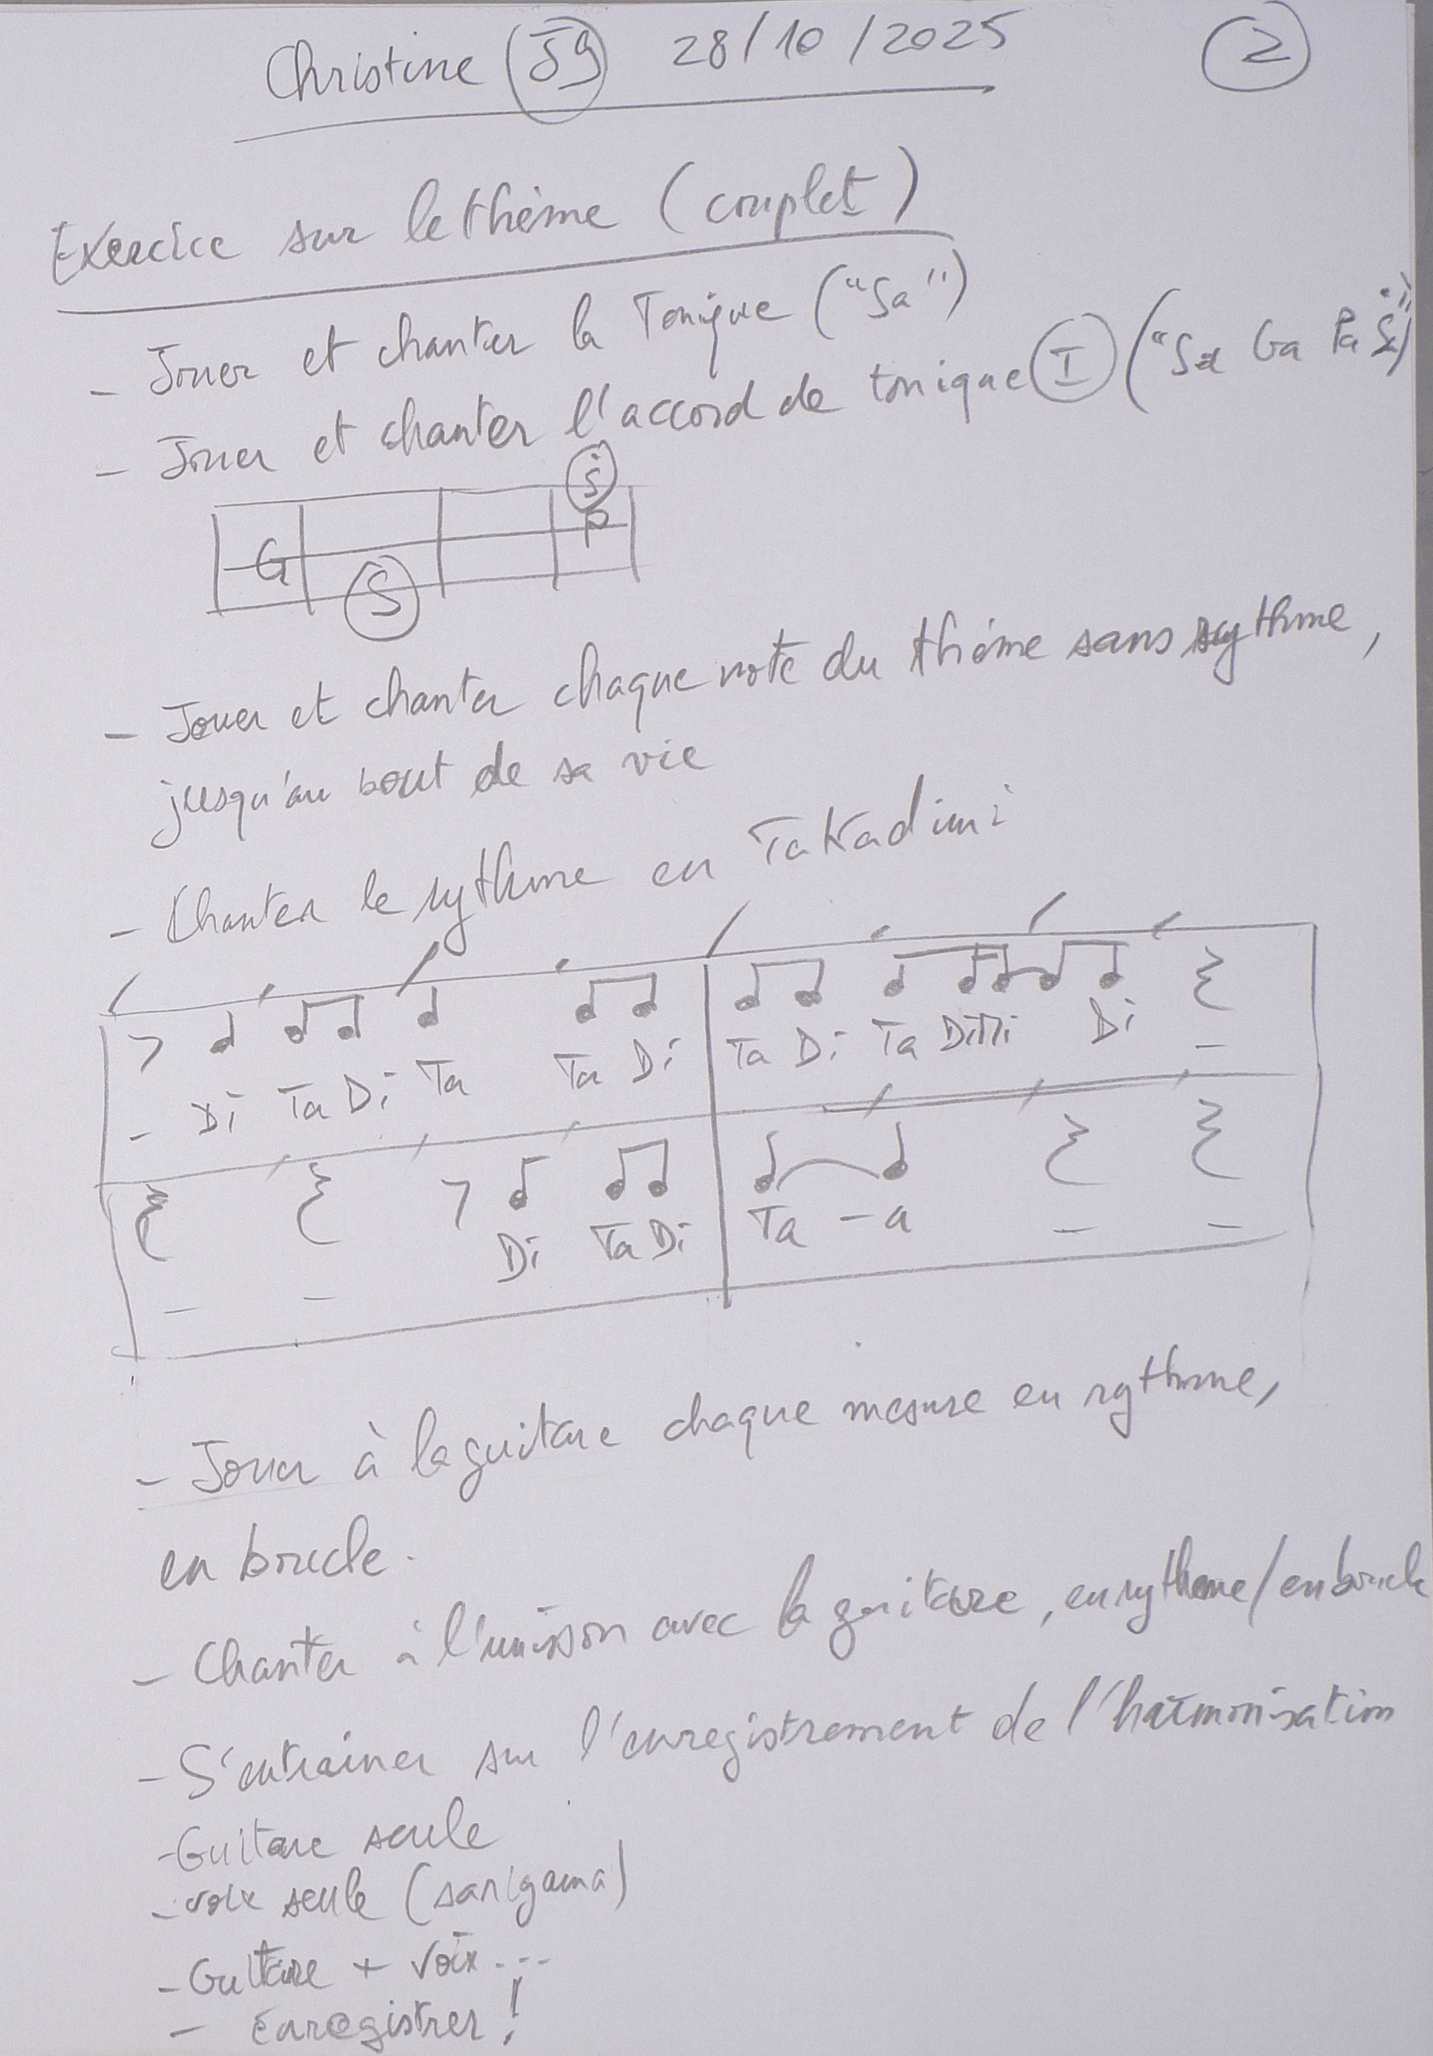 Christine 59 28/10/2025 2
Exercice sur le thème (couplet)
- Jouer et chanter la Tonique ("Sa")
- Jouer et chanter l'accord de tonique I ("Sa Ga Pa Ṡa")
Ṡ
P
G
S
- Jouer et chanter chaque note du thème sans rythme,
jusqu'au bout de sa vie
- Chanter le rythme en Takadimi
- Di Ta Di Ta Ta Di Ta Di Ta Di Mi Di -
- - Di Ta Di Ta - a - -
- Jouer à la guitare chaque mesure en rythme,
en boucle.
- Chanter à l'unisson avec la guitare, en rythme/en boucle
- S'entrainer sur l'enregistrement de l'harmonisation
- Guitare seule
- voix seule (sarigama)
- Guitare + voix...
- Enregistrer !